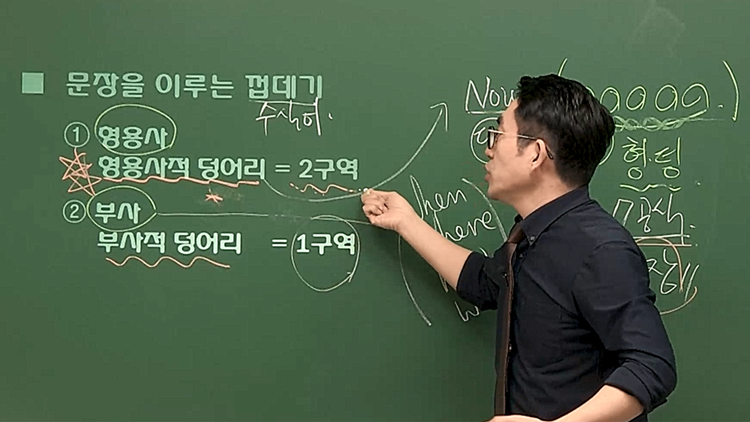 ■ 문장을 이루는 껍데기
수식어.
① 형용사
형용사적 덩어리 = 2구역
② 부사
부사적 덩어리 = 1구역
Now
형.덩